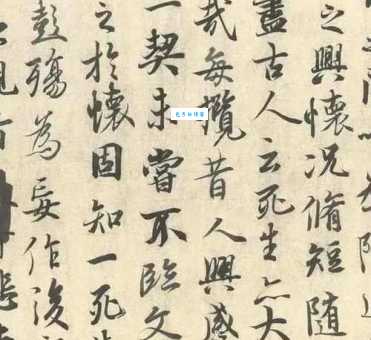 之興懷况脩短随
盡古人云死生亦大
哉每攬昔人興感
一契未嘗不臨文
之於懷固知一死生
彭殤為妄作後